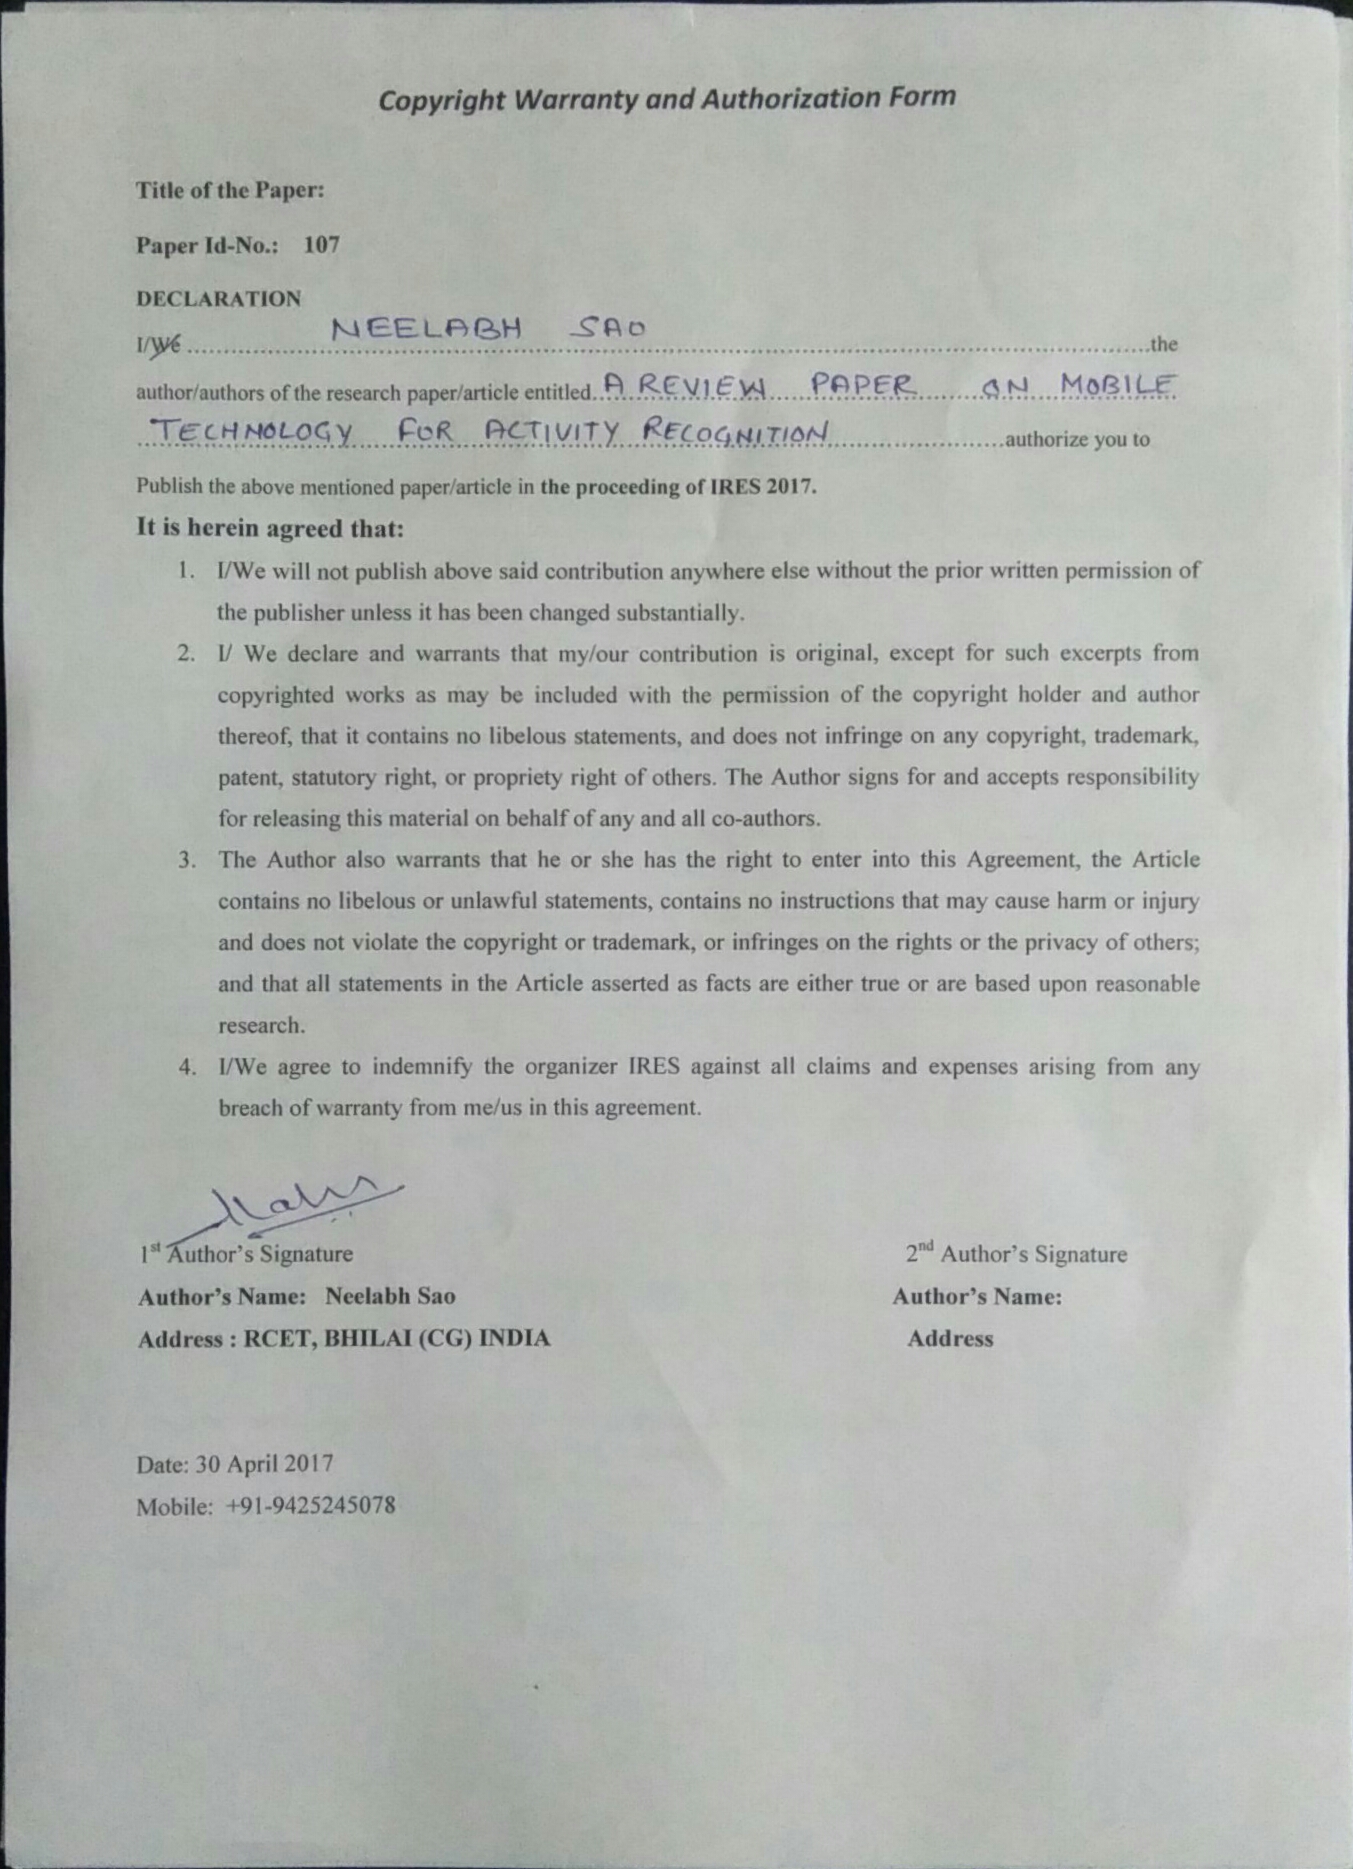 Copyright Warranty and Authorization Form
Title of the Paper:
Paper Id-No.: 107
DECLARATION
I/We ........ NEELABH SAO ........ the
author/authors of the research paper/article entitled A REVIEW PAPER ON MOBILE
TECHNOLOGY FOR ACTIVITY RECOGNITION ........ authorize you to
Publish the above mentioned paper/article in the proceeding of IRES 2017.
It is herein agreed that:
1. I/We will not publish above said contribution anywhere else without the prior written permission of
the publisher unless it has been changed substantially.
2. I/ We declare and warrants that my/our contribution is original, except for such excerpts from
copyrighted works as may be included with the permission of the copyright holder and author
thereof, that it contains no libelous statements, and does not infringe on any copyright, trademark,
patent, statutory right, or propriety right of others. The Author signs for and accepts responsibility
for releasing this material on behalf of any and all co-authors.
3. The Author also warrants that he or she has the right to enter into this Agreement, the Article
contains no libelous or unlawful statements, contains no instructions that may cause harm or injury
and does not violate the copyright or trademark, or infringes on the rights or the privacy of others;
and that all statements in the Article asserted as facts are either true or are based upon reasonable
research.
4. I/We agree to indemnify the organizer IRES against all claims and expenses arising from any
breach of warranty from me/us in this agreement.
1st Author's Signature
Author's Name: Neelabh Sao
Address : RCET, BHILAI (CG) INDIA
2nd Author's Signature
Author's Name:
Address
Date: 30 April 2017
Mobile: +91-9425245078